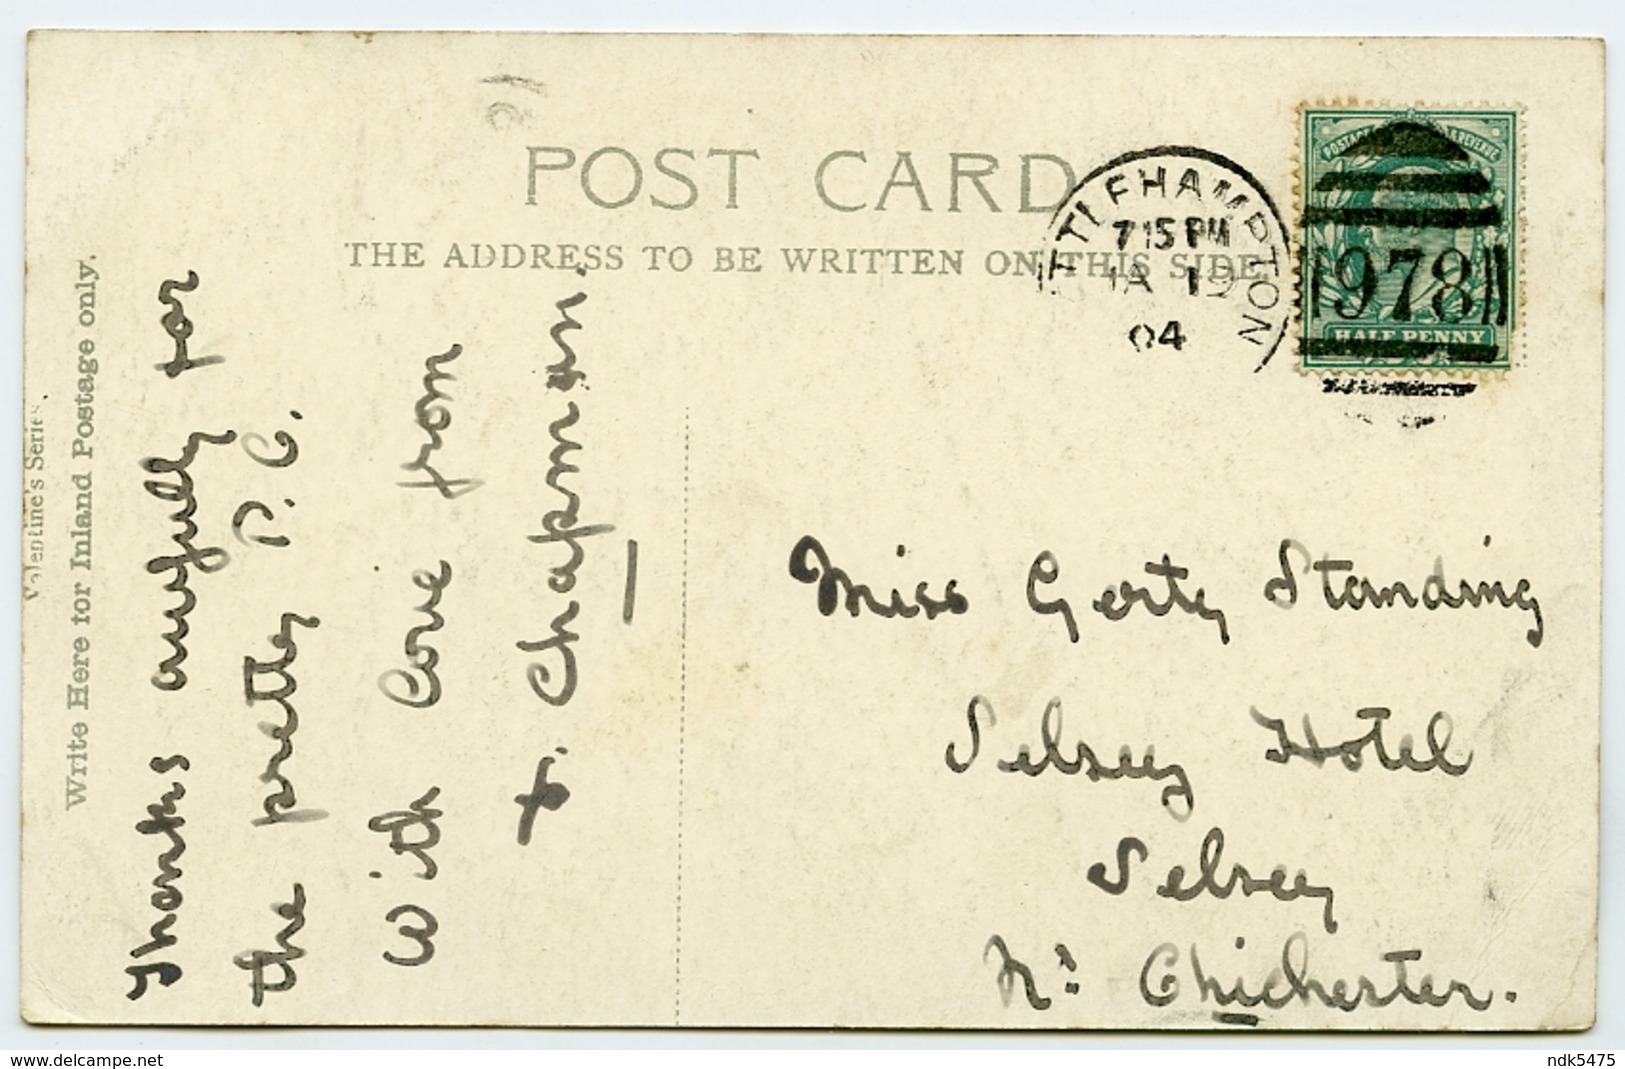 POST CARD
THE ADDRESS TO BE WRITTEN ON THIS SIDE
Valentine's Series.
Write Here for Inland Postage only.
Thanks awfully for
the pretty P.C.
With love from
Chapman.
LITTLEHAMPTON
7 15 PM
JA 19
04
POSTAGE & REVENUE
978
HALF PENNY
Miss Gerty Standing
Selsey Hotel
Selsey
Nr Chichester.
delcampe.net
ndk5475